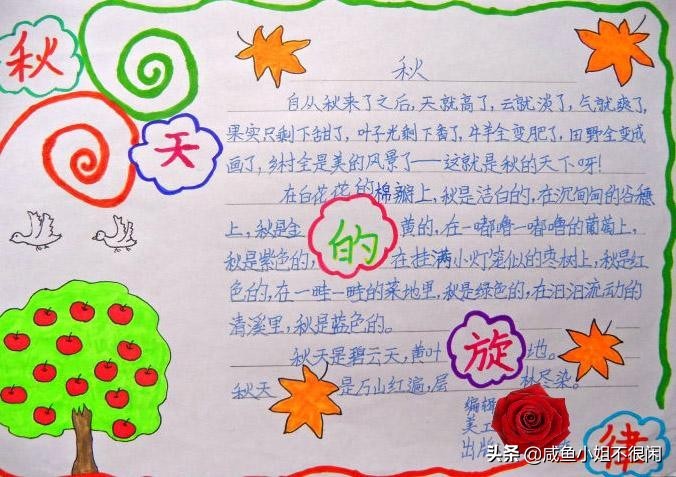 秋
天
的
旋
律
秋
自从秋来了之后,天就高了,云就淡了,气就爽了,
果实只剩下甜了,叶子光剩下香了,牛羊全变肥了,田野全变成
画了,乡村全是美的风景了——这就是秋的天下呀!
在白花花的棉瓣上,秋是洁白的,在沉甸甸的谷穗
上,秋是金黄的,在一嘟噜一嘟噜的葡萄上,
秋是紫色的,在挂满小灯笼似的枣树上,秋是红
色的,在一畦一畦的菜地里,秋是绿色的,在汩汩流动的
清溪里,秋是蓝色的。
秋天是碧云天,黄叶地。
秋天是万山红遍,层林尽染。
编辑
美工
出版
头条 @咸鱼小姐不很闲